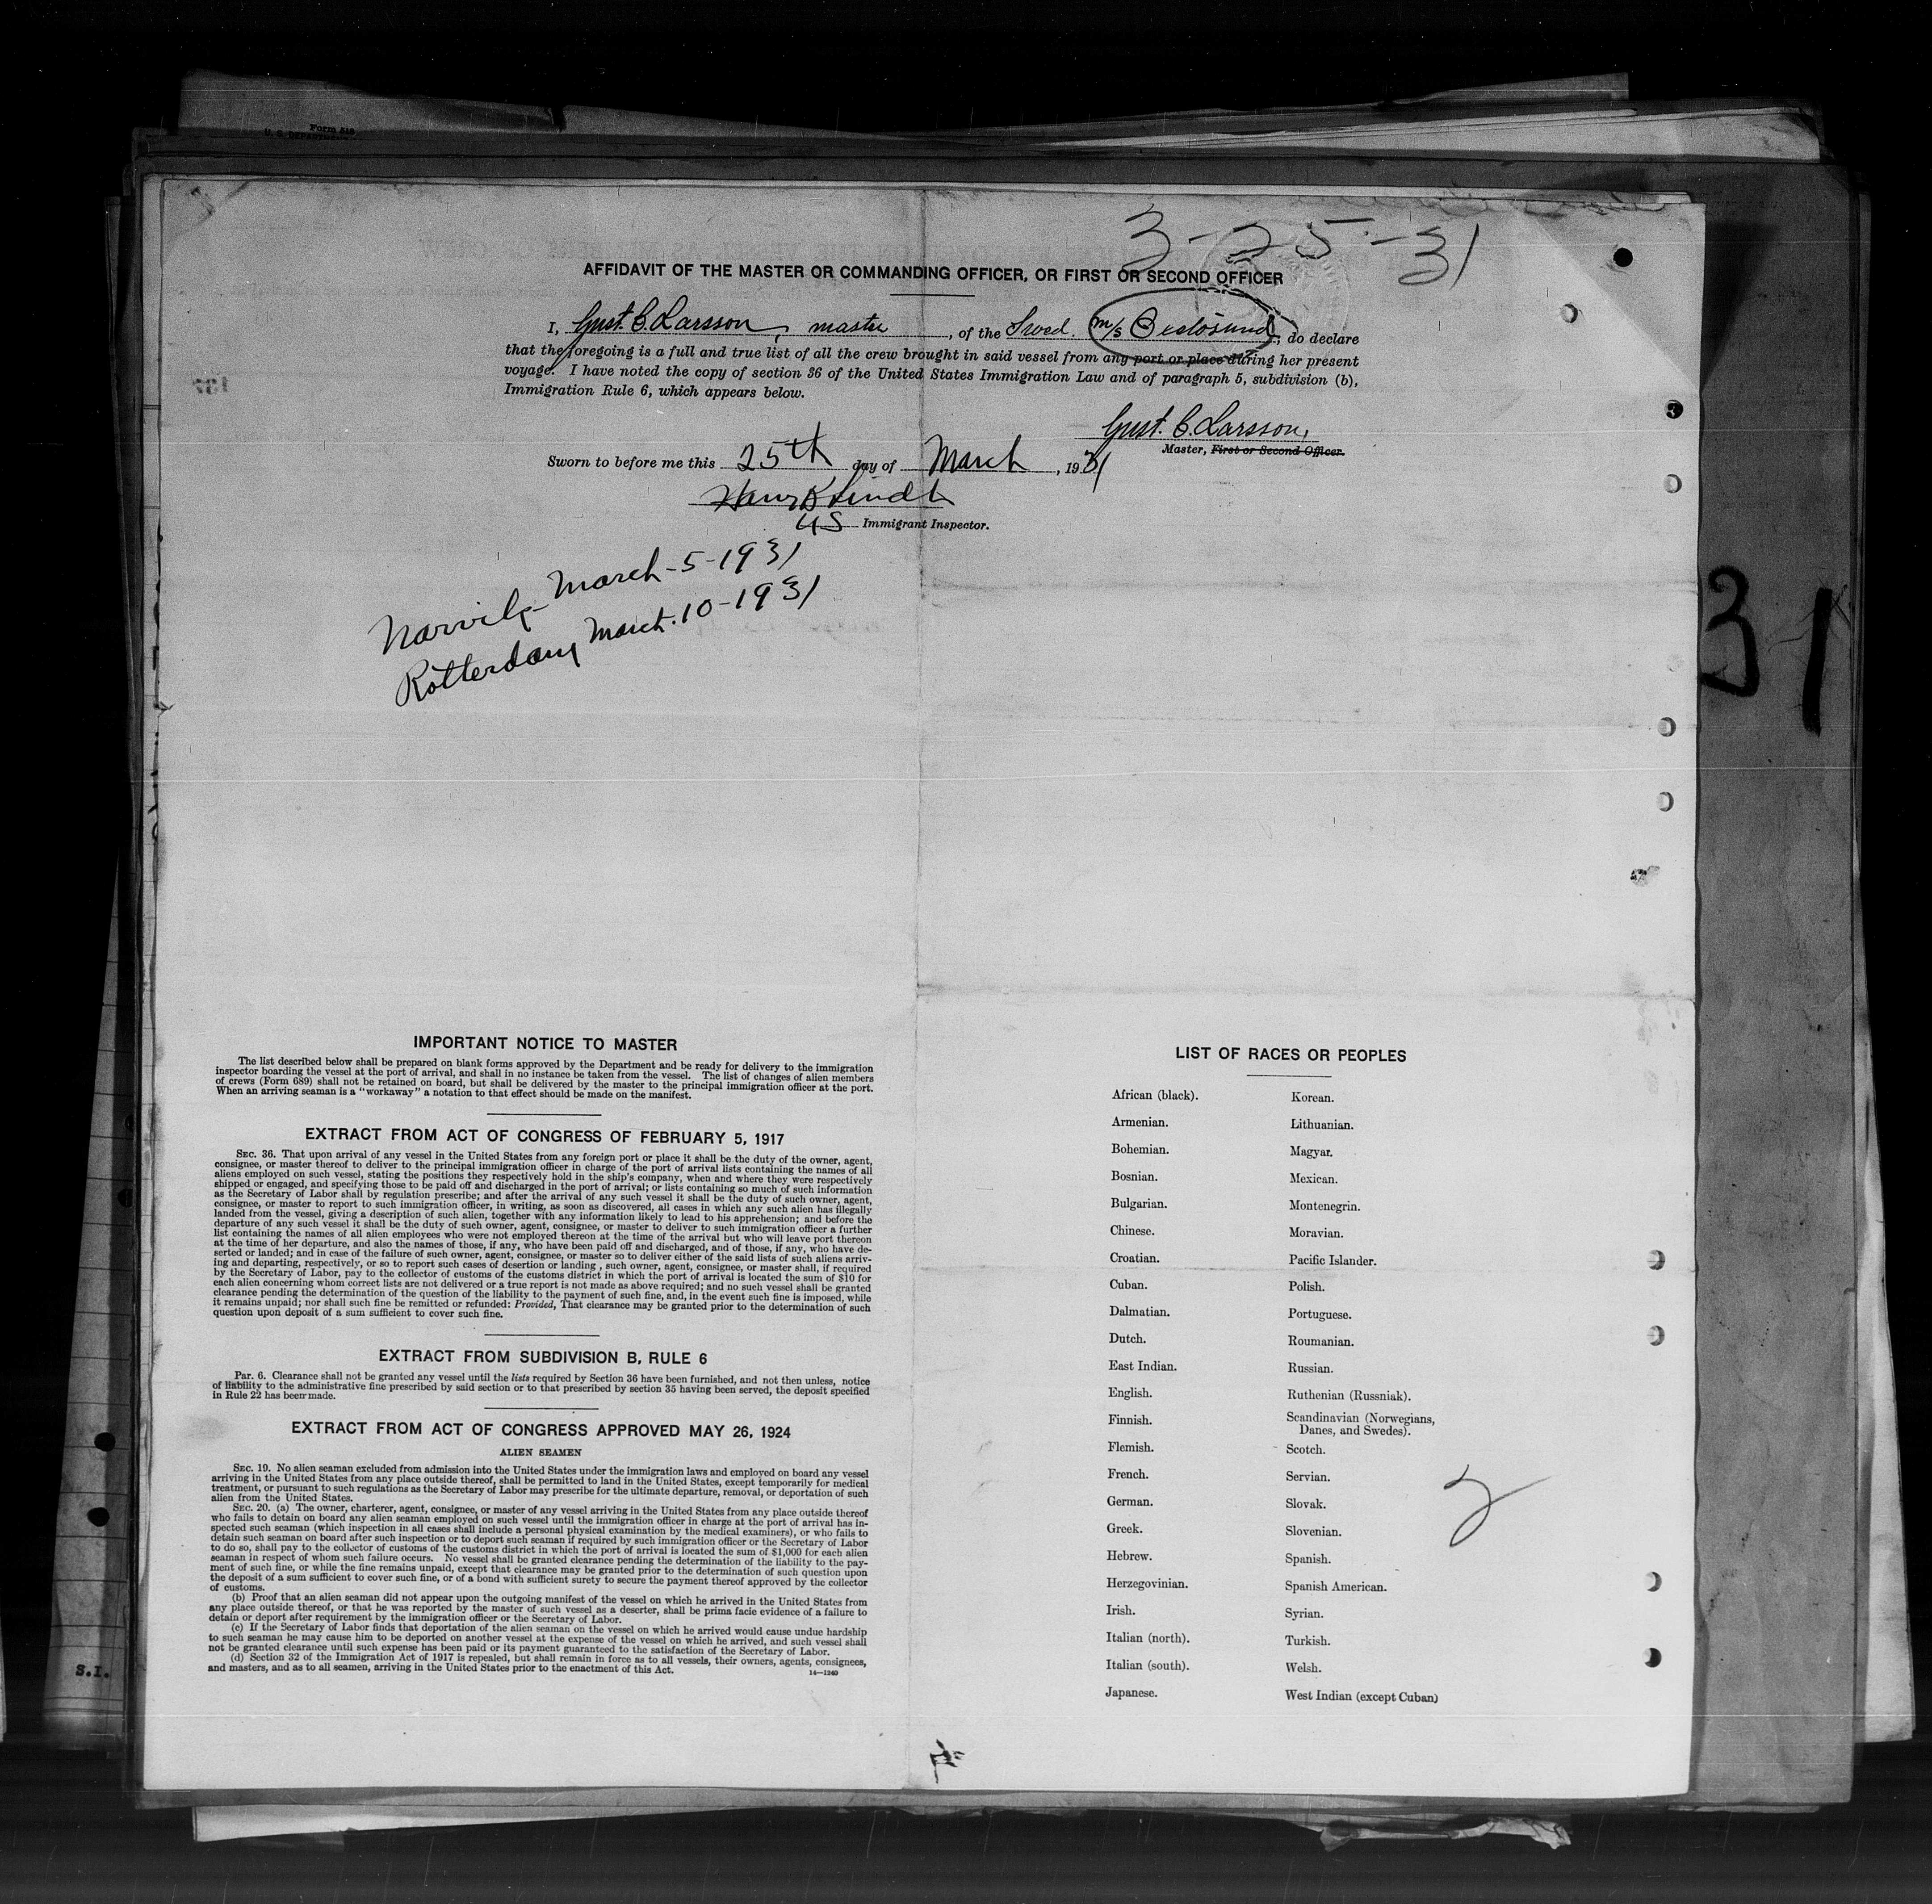 Form 518
U. S. DEPARTMENT
3-25-31
AFFIDAVIT OF THE MASTER OR COMMANDING OFFICER, OR FIRST OR SECOND OFFICER
I, Gust. C. Larsson, master, of the Swed. m/s, do declare
that the foregoing is a full and true list of all the crew brought in said vessel from any port or place during her present
voyage. I have noted the copy of section 36 of the United States Immigration Law and of paragraph 5, subdivision (b),
Immigration Rule 6, which appears below.
Gust. C. Larsson,
Master, First or Second Officer.
Sworn to before me this 25th day of March, 1931
US Immigrant Inspector.
Narvik- March-5-1931
Rotterdam March.10-1931
31
IMPORTANT NOTICE TO MASTER
The list described below shall be prepared on blank forms approved by the Department and be ready for delivery to the immigration
inspector boarding the vessel at the port of arrival, and shall in no instance be taken from the vessel. The list of changes of alien members
of crews (Form 689) shall not be retained on board, but shall be delivered by the master to the principal immigration officer at the port.
When an arriving seaman is a "workaway" a notation to that effect should be made on the manifest.
EXTRACT FROM ACT OF CONGRESS OF FEBRUARY 5, 1917
SEC. 36. That upon arrival of any vessel in the United States from any foreign port or place it shall be the duty of the owner, agent,
consignee, or master thereof to deliver to the principal immigration officer in charge of the port of arrival lists containing the names of all
aliens employed on such vessel, stating the positions they respectively hold in the ship's company, when and where they were respectively
shipped or engaged, and specifying those to be paid off and discharged in the port of arrival; or lists containing so much of such information
as the Secretary of Labor shall by regulation prescribe; and after the arrival of any such vessel it shall be the duty of such owner, agent,
consignee, or master to report to such immigration officer, in writing, as soon as discovered, all cases in which any such alien has illegally
landed from the vessel, giving a description of such alien, together with any information likely to lead to his apprehension; and before the
departure of any such vessel it shall be the duty of such owner, agent, consignee, or master to deliver to such immigration officer a further
list containing the names of all alien employees who were not employed thereon at the time of the arrival but who will leave port thereon
at the time of her departure, and also the names of those, if any, who have been paid off and discharged, and of those, if any, who have de-
serted or landed; and in case of the failure of such owner, agent, consignee, or master so to deliver either of the said lists of such aliens arriv-
ing and departing, respectively, or so to report such cases of desertion or landing , such owner, agent, consignee, or master shall, if required
by the Secretary of Labor, pay to the collector of customs of the customs district in which the port of arrival is located the sum of $10 for
each alien concerning whom correct lists are not delivered or a true report is not made as above required; and no such vessel shall be granted
clearance pending the determination of the question of the liability to the payment of such fine, and, in the event such fine is imposed, while
it remains unpaid; nor shall such fine be remitted or refunded: Provided, That clearance may be granted prior to the determination of such
question upon deposit of a sum sufficient to cover such fine.
EXTRACT FROM SUBDIVISION B, RULE 6
Par. 6. Clearance shall not be granted any vessel until the lists required by Section 36 have been furnished, and not then unless, notice
of liability to the administrative fine prescribed by said section or to that prescribed by section 35 having been served, the deposit specified
in Rule 22 has been made.
EXTRACT FROM ACT OF CONGRESS APPROVED MAY 26, 1924
ALIEN SEAMEN
SEC. 19. No alien seaman excluded from admission into the United States under the immigration laws and employed on board any vessel
arriving in the United States from any place outside thereof, shall be permitted to land in the United States, except temporarily for medical
treatment, or pursuant to such regulations as the Secretary of Labor may prescribe for the ultimate departure, removal, or deportation of such
alien from the United States.
SEC. 20. (a) The owner, charterer, agent, consignee, or master of any vessel arriving in the United States from any place outside thereof
who fails to detain on board any alien seaman employed on such vessel until the immigration officer in charge at the port of arrival has in-
spected such seaman (which inspection in all cases shall include a personal physical examination by the medical examiners), or who fails to
detain such seaman on board after such inspection or to deport such seaman if required by such immigration officer or the Secretary of Labor
to do so, shall pay to the collector of customs of the customs district in which the port of arrival is located the sum of $1,000 for each alien
seaman in respect of whom such failure occurs. No vessel shall be granted clearance pending the determination of the liability to the pay-
ment of such fine, or while the fine remains unpaid, except that clearance may be granted prior to the determination of such question upon
the deposit of a sum sufficient to cover such fine, or of a bond with sufficient surety to secure the payment thereof approved by the collector
of customs.
(b) Proof that an alien seaman did not appear upon the outgoing manifest of the vessel on which he arrived in the United States from
any place outside thereof, or that he was reported by the master of such vessel as a deserter, shall be prima facie evidence of a failure to
detain or deport after requirement by the immigration officer or the Secretary of Labor.
(c) If the Secretary of Labor finds that deportation of the alien seaman on the vessel on which he arrived would cause undue hardship
to such seaman he may cause him to be deported on another vessel at the expense of the vessel on which he arrived, and such vessel shall
not be granted clearance until such expense has been paid or its payment guaranteed to the satisfaction of the Secretary of Labor.
(d) Section 32 of the Immigration Act of 1917 is repealed, but shall remain in force as to all vessels, their owners, agents, consignees,
and masters, and as to all seamen, arriving in the United States prior to the enactment of this Act.
14—1240
S.I.
LIST OF RACES OR PEOPLES
African (black).
Armenian.
Bohemian.
Bosnian.
Bulgarian.
Chinese.
Croatian.
Cuban.
Dalmatian.
Dutch.
East Indian.
English.
Finnish.
Flemish.
French.
German.
Greek.
Hebrew.
Herzegovinian.
Irish.
Italian (north).
Italian (south).
Japanese.
Korean.
Lithuanian.
Magyar.
Mexican.
Montenegrin.
Moravian.
Pacific Islander.
Polish.
Portuguese.
Roumanian.
Russian.
Ruthenian (Russniak).
Scandinavian (Norwegians,
Danes, and Swedes).
Scotch.
Servian.
Slovak.
Slovenian.
Spanish.
Spanish American.
Syrian.
Turkish.
Welsh.
West Indian (except Cuban)
2